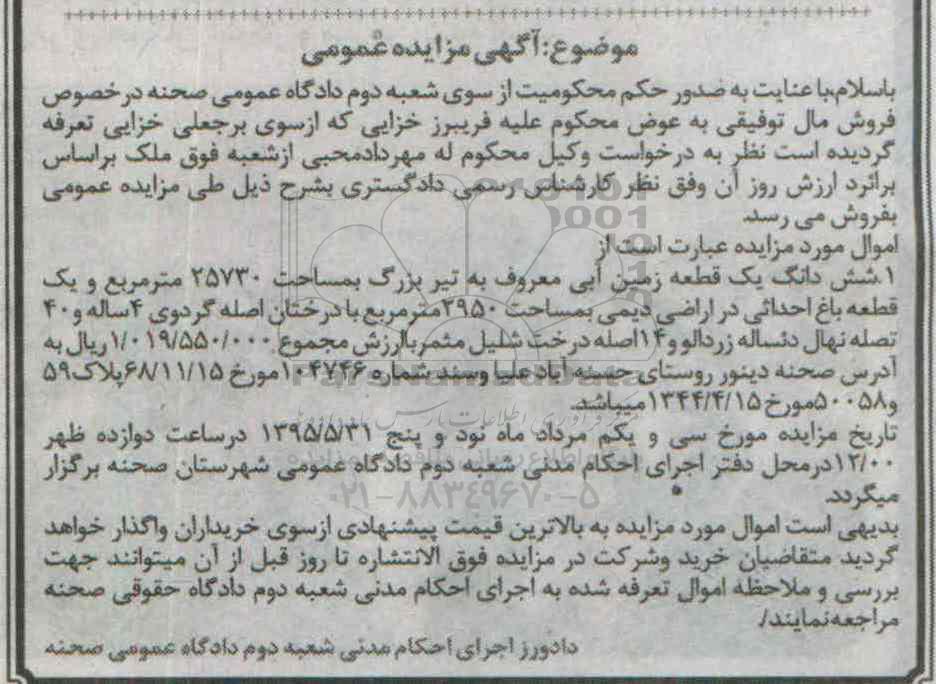 موضوع: آگهی مزایده عمومی
باسلام،با عنایت به صدور حکم محکومیت از سوی شعبه دوم دادگاه عمومی صحنه درخصوص
فروش مال توقیفی به عوض محکوم علیه فریبرز خزایی که ازسوی برجعلی خزایی تعرفه
گردیده است نظر به درخواست وکیل محکوم له مهردادمحبی ازشعبه فوق ملک براساس
برائرد ارزش روز آن وفق نظر کارشناس رسمی دادگستری بشرح ذیل طی مزایده عمومی
بفروش می رسد.
اموال مورد مزایده عبارت است از
۱.شش دانگ یک قطعه زمین آبی معروف به تیر بزرگ بمساحت ۲۵۷۳۰ مترمربع و یک
قطعه باغ احداثی در اراضی دیمی بمساحت ۲۹۵۰مترمربع با درختان اصله گردوی ۴ساله و۴۰
تصله نهال دئساله زردالو و۱۴اصله درخت شلیل مثمرباارزش مجموع ۱/۰۱۹/۵۵۰/۰۰۰ریال به
آدرس صحنه دینور روستای حسینه آباد علیا وسند شماره ۱۰۴۷۴۶مورخ ۶۸/۱۱/۱۵پلاک۵۹
و۵۰۰۵۸مورخ ۱۳۴۴/۴/۱۵میباشد.
تاریخ مزایده مورخ سی و یکم مرداد ماه نود و پنج ۱۳۹۵/۵/۳۱ درساعت دوازده ظهر
۱۲/۰۰درمحل دفتر اجرای احکام مدنی شعبه دوم دادگاه عمومی شهرستان صحنه برگزار
میگردد.
بدیهی است اموال مورد مزایده به بالاترین قیمت پیشنهادی ازسوی خریداران واگذار خواهد
گردید متقاضیان خرید وشرکت در مزایده فوق الانتشاره تا روز قبل از آن میتوانند جهت
بررسی و ملاحظه اموال تعرفه شده به اجرای احکام مدنی شعبه دوم دادگاه حقوقی صحنه
مراجعه‌نمایند/
دادورز اجرای احکام مدنی شعبه دوم دادگاه عمومی صحنه
ParsNamadData
۰۲۱-۸۸۳۴۹۶۷۰-۵